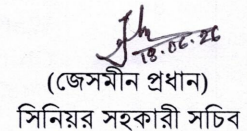 18.06.26
(জেসমীন প্রধান)
সিনিয়র সহকারী সচিব